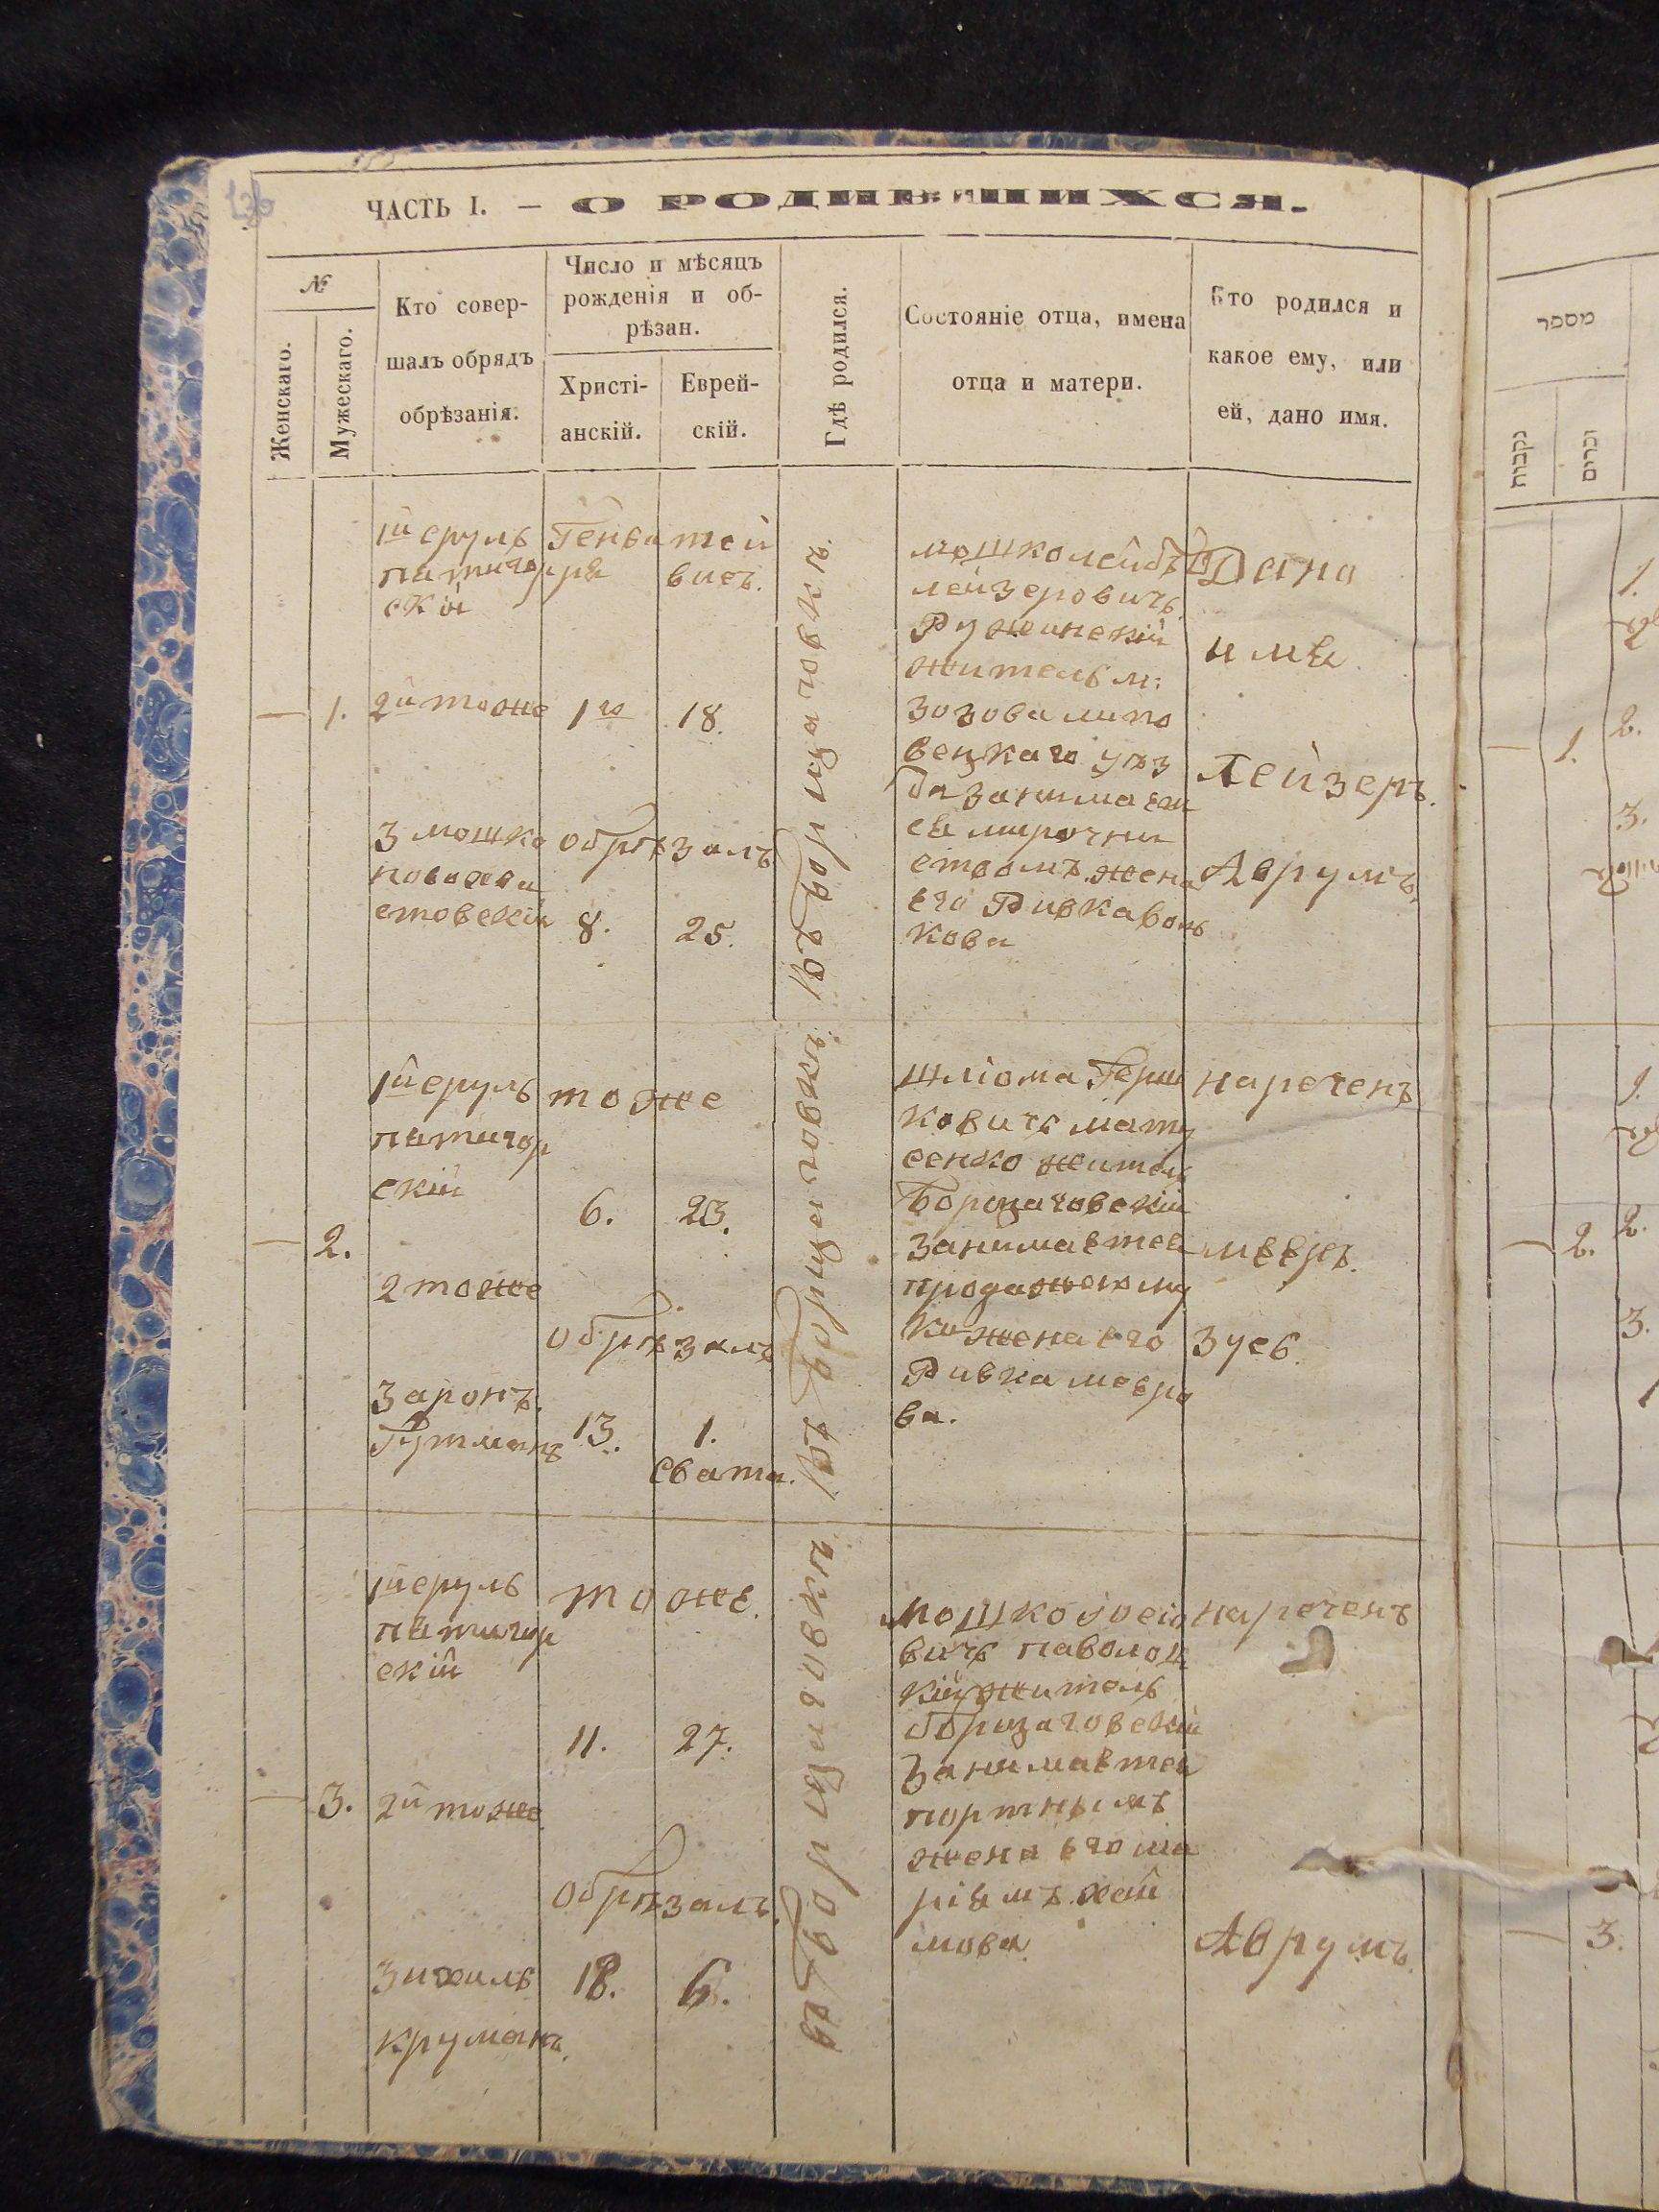 136
ЧАСТЬ I. — О РОДИВШИХСЯ.
№
Женскаго.
Мужескаго.
Кто совер-
шалъ обрядъ
обрѣзанія.
Число и мѣсяцъ
рожденія и об-
рѣзан.
Христі-
анскій.
Еврей-
скій.
Гдѣ родился.
Состояніе отца, имена
отца и матери.
Кто родился и
какое ему, или
ей, дано имя.
— 1.
1й сруль
патигор
скій
2й тоже
3 мошко
Генва
ря
1го
обрѣзанъ
8.
тей
висъ.
18.
25.
Въ Борщаговкъ
мошко лейбъ
лейзеровичъ
Ружинскій
житель м:
зозова липо
вецкаго уѣз
да занимаеи
ся
ствомъ. жена
его Ривка вол
кова
Дано
имя.
Лейзеръ.
Аврумъ.
— 2.
1й сруль
патигор
скій
2 тоже
3 аронъ.
Гутманъ
тоже
6.
23.
обрѣзанъ
13.
1.
свата.
Въ Борщаговкъ
шліома Герш
ковичъ мату
сенко житель
Борщаговскій
занимаетси
продажою му
ки жена его
Ривка мееро
ва.
нареченъ
мееръ.
Зусь.
— 3.
1й сруль
патигор
скій
2й тоже
3 ихиль
круманъ.
тоже.
11.
27.
обрѣзанъ.
18.
6.
въ Борщаговкъ
мошко
вичъ паволоц
кій житель
борщаговскій
занимаетси
портнымъ
жена его ма
ріямъ хаи
мова
нареченъ
Аврумъ.
מספר
נקבות
זכרים
— 1.
1.
2.
3.
— 2.
1.
2.
3.
— 3.